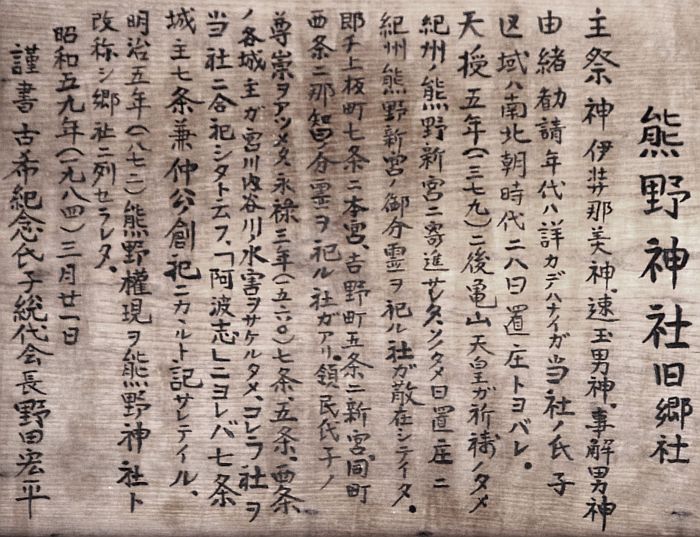 熊野神社旧郷社
主祭神 伊弉那美神、速玉男神、事解男神
由緒勧請年代ハ詳カデハナイガ当社ノ氏子
区域ハ南北朝時代ニハ日置庄トヨバレ。
天授五年(一三七九)ニ後亀山天皇が祈祷ノタメ
紀州熊野新宮ニ寄進サレタ、ソノタメ日置庄ニ
紀州熊野新宮ノ御分霊ヲ祀ル社が散在シテイタ。
即チ上板町七条ニ本宮、吉野町五条ニ新宮、同町
西条ニ那智ノ分霊ヲ祀ル社ガアリ。領民氏子ノ
尊崇ヲアツメタ永禄三年(一五六〇)七条、五条、西条
ノ各城主ガ宮川内谷川ノ水害ヲサケルタメ、コレラ社ヲ
当社ニ合祀シタト云フ、「阿波志」ニヨレバ七条
城主七条兼仲公ノ創祀ニカヽルト記サレテイル、
明治五年(一八七二)熊野権現ヲ熊野神社ト
改称シ郷社ニ列セラレタ、
昭和五九年(一九八四)三月廿一日
謹書 古希紀念氏子総代会長野田宏平